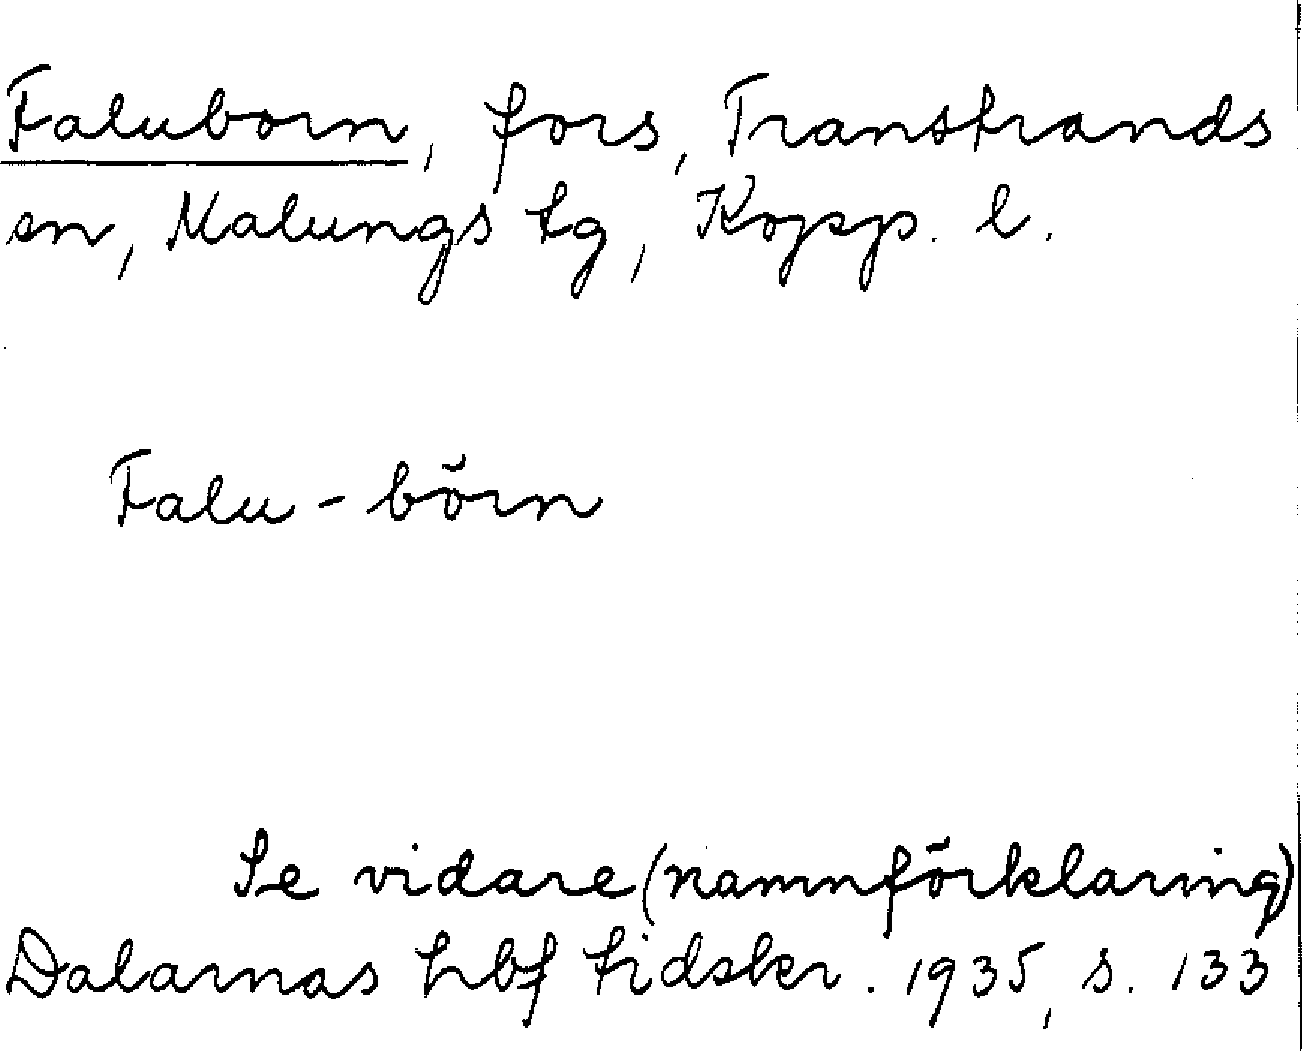 Faluborn, fors, Transtrands
sn, Malungs tg, Kopp. l.
Falu-börn
Se vidare (namnförklaring)
Dalarnas hbf tidskr. 1935, s. 133